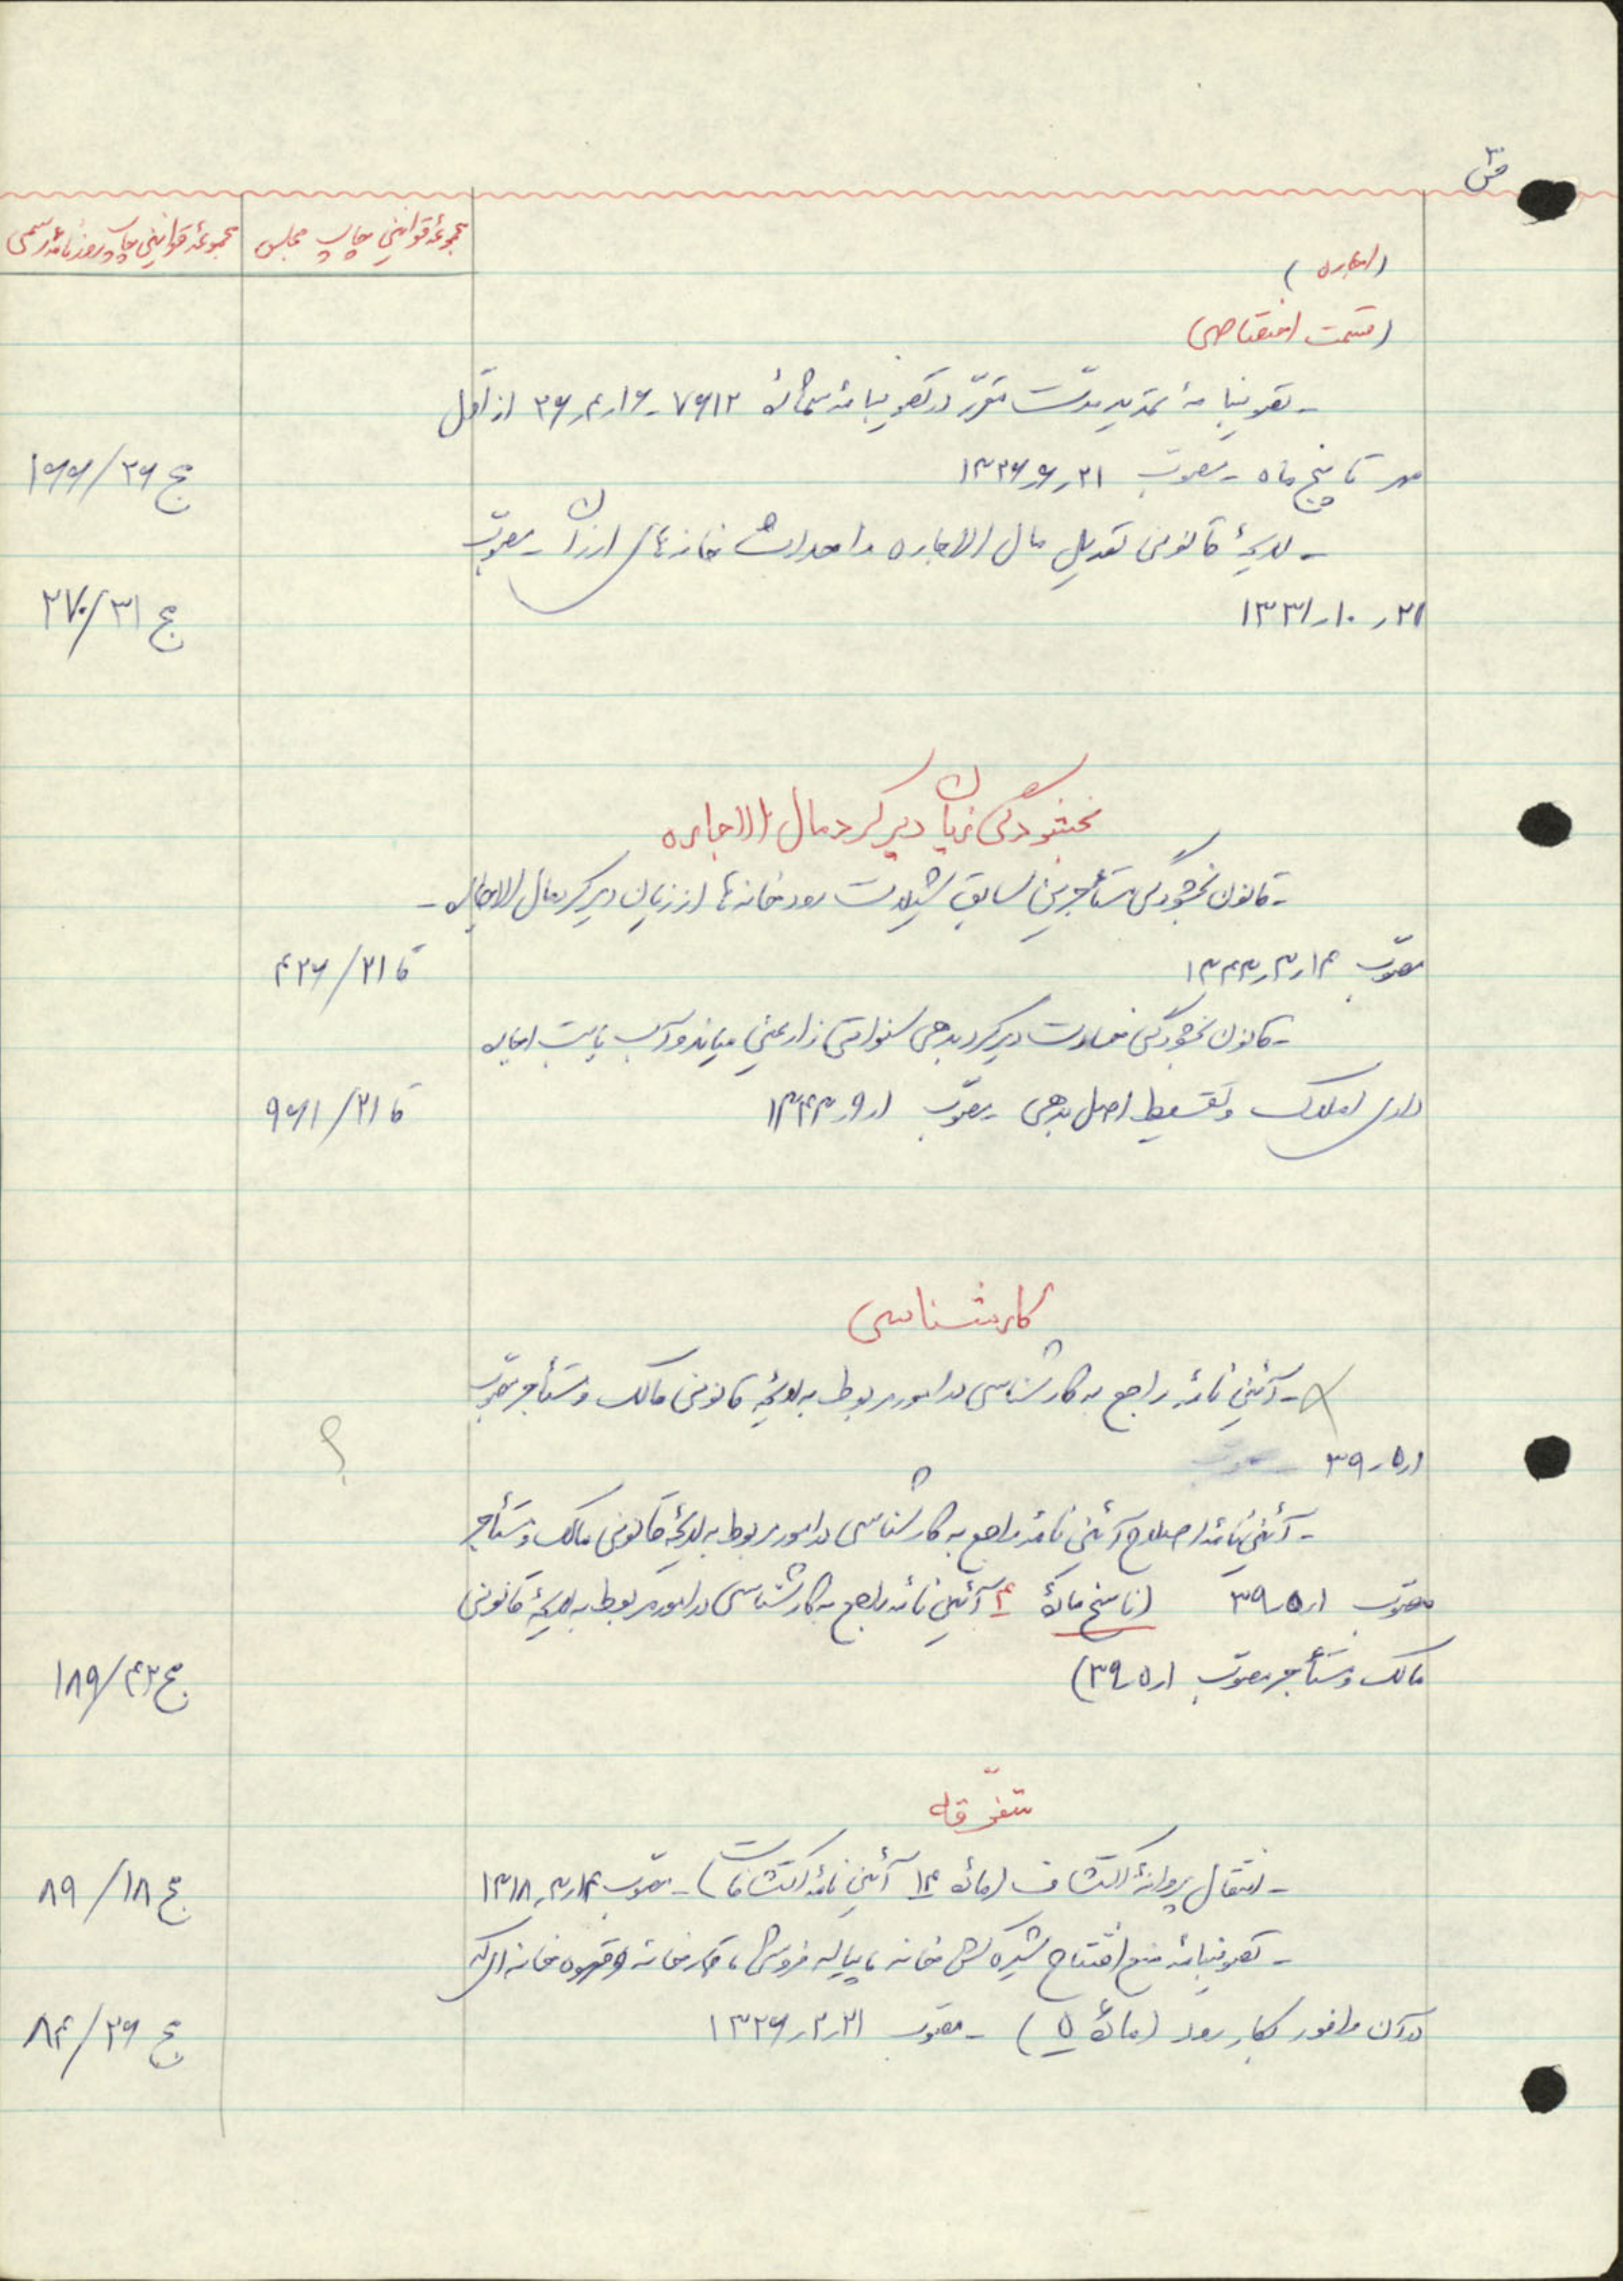 ص ۳
مجموعهٔ قوانین چاپ مجلس
مجموعهٔ قوانین چاپ روزنامهٔ رسمی
(اجاره)
(قسمت اختصاصی)
- تصویبنامهٔ تمدید مدّت مقرّر در تصویبنامهٔ شمارهٔ ۷۶۱۲ - ۱۶ر۴ر۲۶ از اوّل
مهر تا پنج ماه - مصوّب ۲۱ر۶ر۱۳۲۶ ج ۲۶/۱۶۶
- لایحهٔ قانونی تعدیل مال الاجاره و احداث خانه‌های ارزان - مصوّب
۲۱ر۱۰ر۱۳۳۱ ج ۳۱/۲۷۰
بخشودگی زیان دیرکرد مال الاجاره
- قانون بخشودگی مستأجرین سابق شیلات رودخانه‌ها از زیان دیرکرد مال الاجاره -
مصوّب ۱۴ر۳ر۱۳۴۳ قا ۲۱/۴۲۶
- قانون بخشودگی خسارت دیرکرد بدهی سنواتی زارعین میاندوآب بابت اجاره
داری املاک و تقسیط اصل بدهی - مصوّب ۱ر۹ر۱۳۴۳ قا ۲۱/۹۶۱
کارشناسی
- آئین نامهٔ راجع به کارشناسی در امور مربوط به لایحهٔ قانونی مالک و مستأجر مصوّب
۱ر۵ر۳۹ ؟
- آئین نامهٔ اصلاح آئین نامهٔ راجع به کارشناسی در امور مربوط به لایحهٔ قانونی مالک و مستأجر
مصوّب ۱ر۵ر۳۹ (ناسخ مادّهٔ ۴ آئین نامهٔ راجع به کارشناسی در امور مربوط به لایحهٔ قانونی
مالک و مستأجر مصوّب ۱ر۵ر۳۹) ج ۴۲/۱۸۹
متفرّقه
- انتقال پروانهٔ اکتشاف (مادّهٔ ۱۴ آئین نامهٔ اکتشافات) - مصوّب ۱۴ر۳ر۱۳۱۸ ج ۱۸/۸۹
- تصویبنامهٔ منع افتتاح شیره کش خانه، پیاله فروشی، قمارخانه و قهوه خانه ای که
در آن وافور بکار رود (مادّهٔ ۵) - مصوّب ۲۱ر۲ر۱۳۲۶ ج ۲۶/۸۴